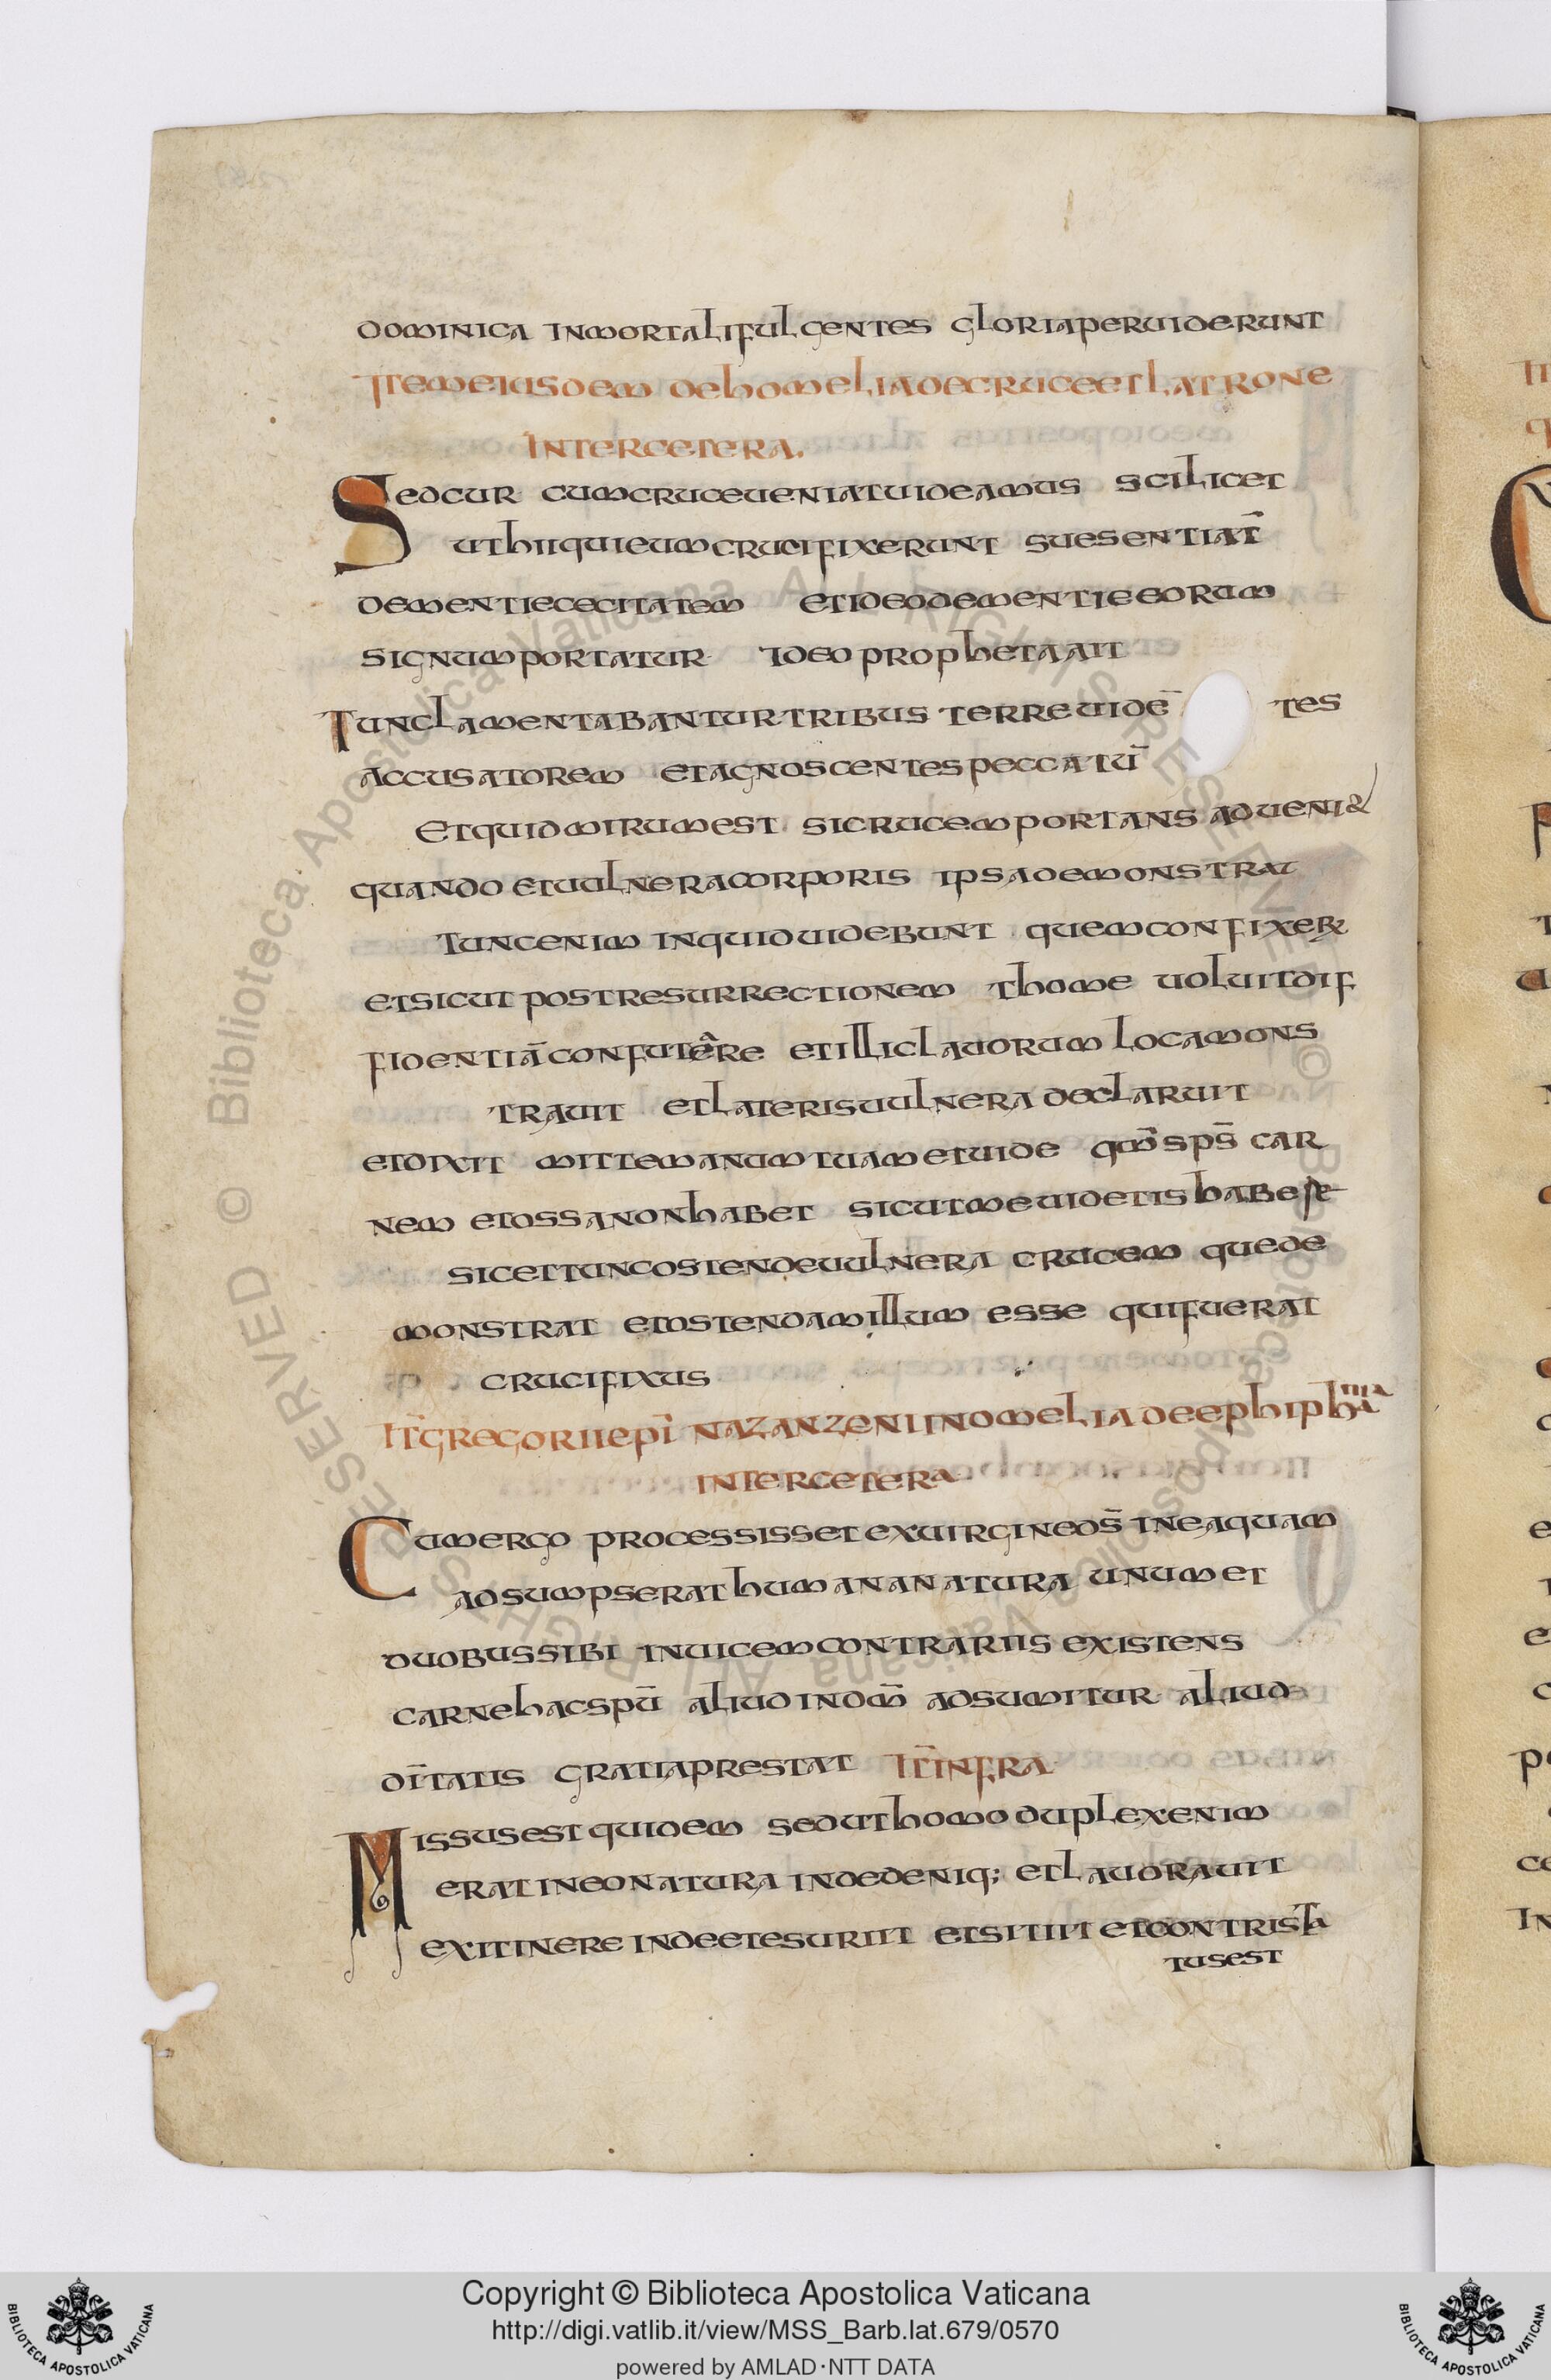 dominica inmortali fulgentes gloria peruiderunt
Item eiusdem de homelia de cruce et latrone
inter cetera.
Sed cur cum cruce ueniat uideamus scilicet
ut hii qui eum crucifixerunt sue sentiat̄
dementie cecitatem et ideo dementie eorum
signum portatur Ideo propheta ait
Tunc lamentabantur tribus terre uidē tes
accusatorem et agnoscentes peccatū
Et quid mirum est si crucem portans adueni&
quando et uulnera corporis ipsa demonstrat
Tunc enim inquid uidebunt quem confixer̄
et sicut post resurrectionem thome uoluit dif
fidentiā confutere et illi clauorum loca mons
trauit et lateris uulnera declaruit
et dixit mitte manum tuam et uide qm̄ sps̄ car
nem et ossa non habet sicut me uidetis habere
sic et tunc ostende uulnera crucem que de
monstrat et ostendam illum esse qui fuerat
crucifixus
It̄ gregorii epi̅ nazanzeni in omelia de ephiphīa
inter cetera
Cum ergo processisset ex uirgine ds̄ in ea quam
adsumpserat humana natura unum et
duobus sibi inuicem contrariis existens
carne hac spū aliud in dm̄ adsumitur aliud
dītatis gratia prestat It̄ infra
Missus est quidem sed ut homo duplex enim
erat in eo natura inde deniq; et lauorauit
ex itinere inde et esuriit et sitiit et contrista
tus est
Copyright © Biblioteca Apostolica Vaticana
http://digi.vatlib.it/view/MSS_Barb.lat.679/0570
powered by AMLAD·NTT DATA